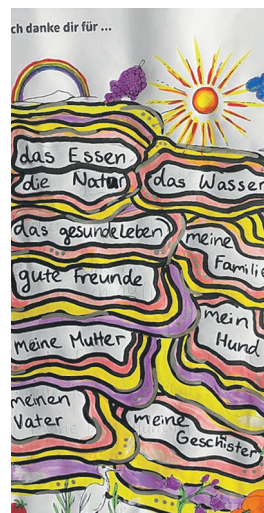 ch danke dir für ...
das Essen
die Natur
das Wasser
das gesunde Leben
meine
Familie
gute Freunde
mein
Hund
meine Mutter
meinen
Vater
meine
Geschister